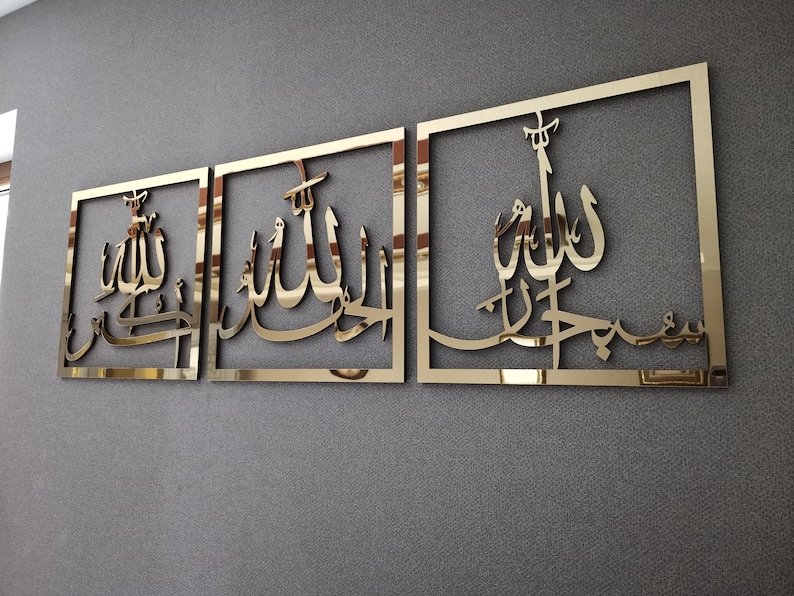 سُبْحَانَ الله
الْحَمْدُ لله
الله أكبر